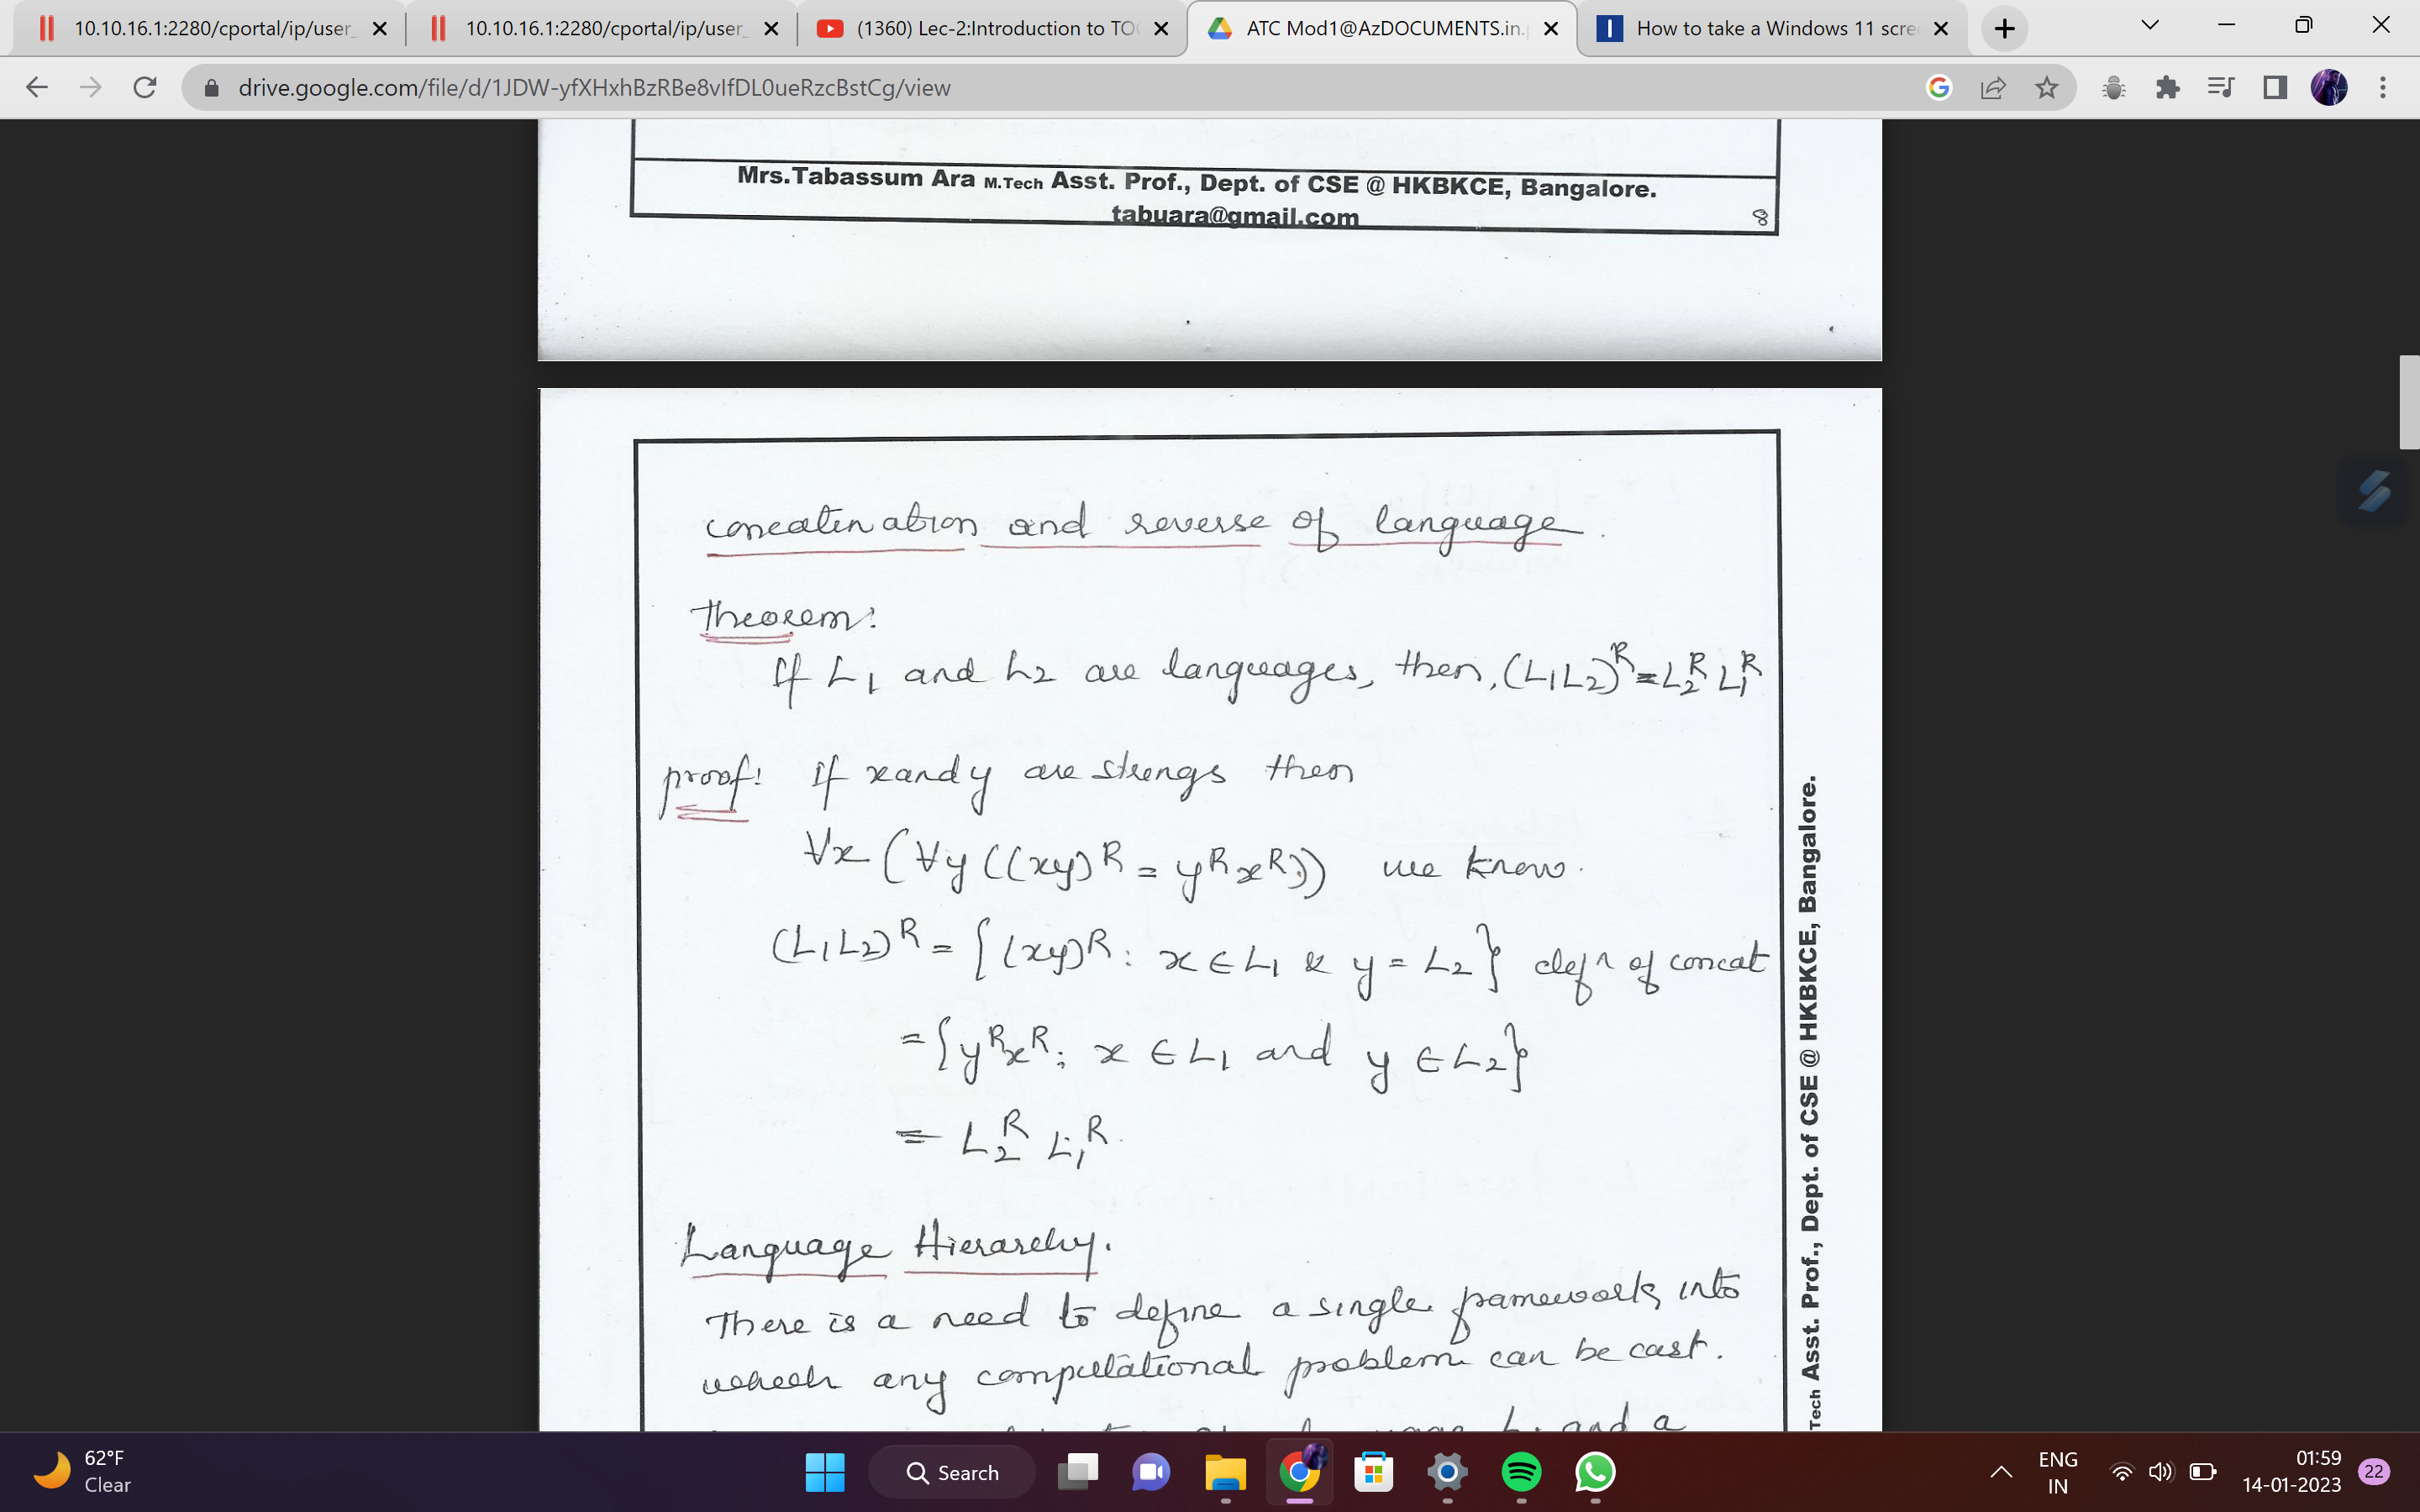 10.10.16.1:2280/cportal/ip/user_
10.10.16.1:2280/cportal/ip/user_
(1360) Lec-2:Introduction to TO
ATC Mod1@AzDOCUMENTS.in.
How to take a Windows 11 scre
drive.google.com/file/d/1JDW-yfXHxhBzRBe8vIfDL0ueRzcBstCg/view
Mrs.Tabassum Ara M.Tech Asst. Prof., Dept. of CSE @ HKBKCE, Bangalore.
tabuara@gmail.com
8
concatination and reverse of language.
Theorem:
If L₁ and L₂ are languages, then, (L₁L₂)ᴿ = L₂ᴿ L₁ᴿ
proof: If x and y are strings then
∀x (∀y ((xy)ᴿ = yᴿxᴿ)) we know.
(L₁L₂)ᴿ = {(xy)ᴿ : x ∈ L₁ & y = L₂} defn of concat
= {yᴿxᴿ : x ∈ L₁ and y ∈ L₂}
= L₂ᴿ L₁ᴿ.
Language Hierarchy.
There is a need to define a single framework into
which any computational problem can be cast.
L₁ and a
Tech Asst. Prof., Dept. of CSE @ HKBKCE, Bangalore.
62°F
Clear
Search
ENG
IN
01:59
14-01-2023
22